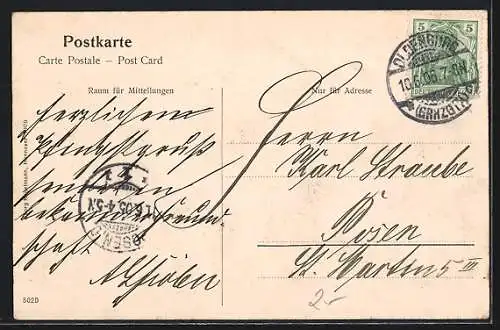 Postkarte
Carte Postale – Post Card
Raum für Mittheilungen
Nur für Adresse
5 5
OLDENBURG
10.6.05.7-8N.
(GRHZGT.)
herzlichem
Pfingstgruß
senden
bekannt Freund-
schaft
Herrn
Karl Straube
Posen
St. Martin 5 III
POSEN
6.05.4-5
502D
2-